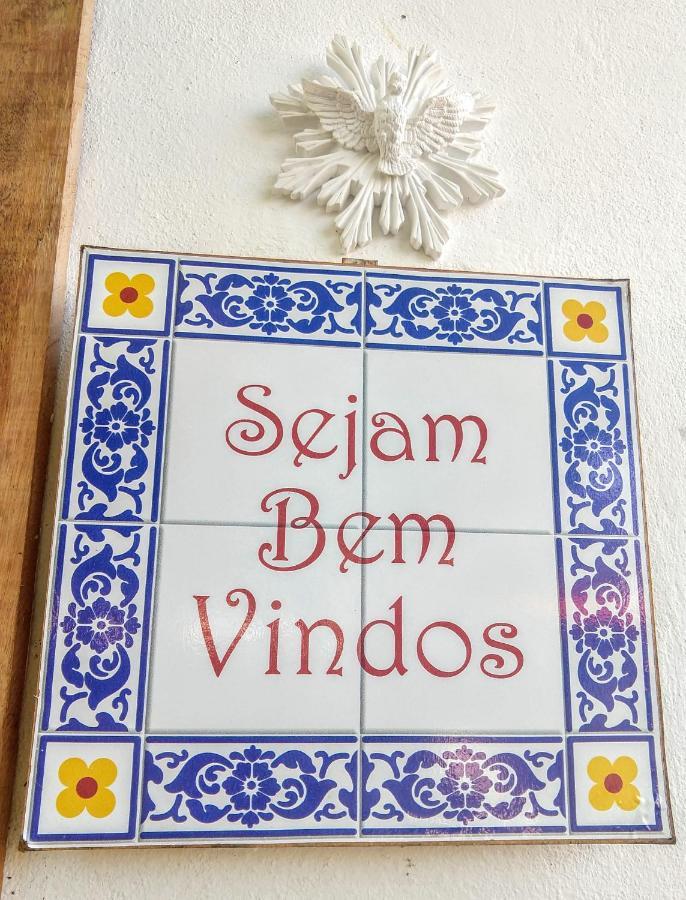 Sejam
Bem
Vindos